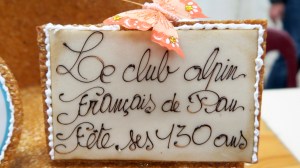 Le club alpin
Français de Pau
Fête ses 130 ans